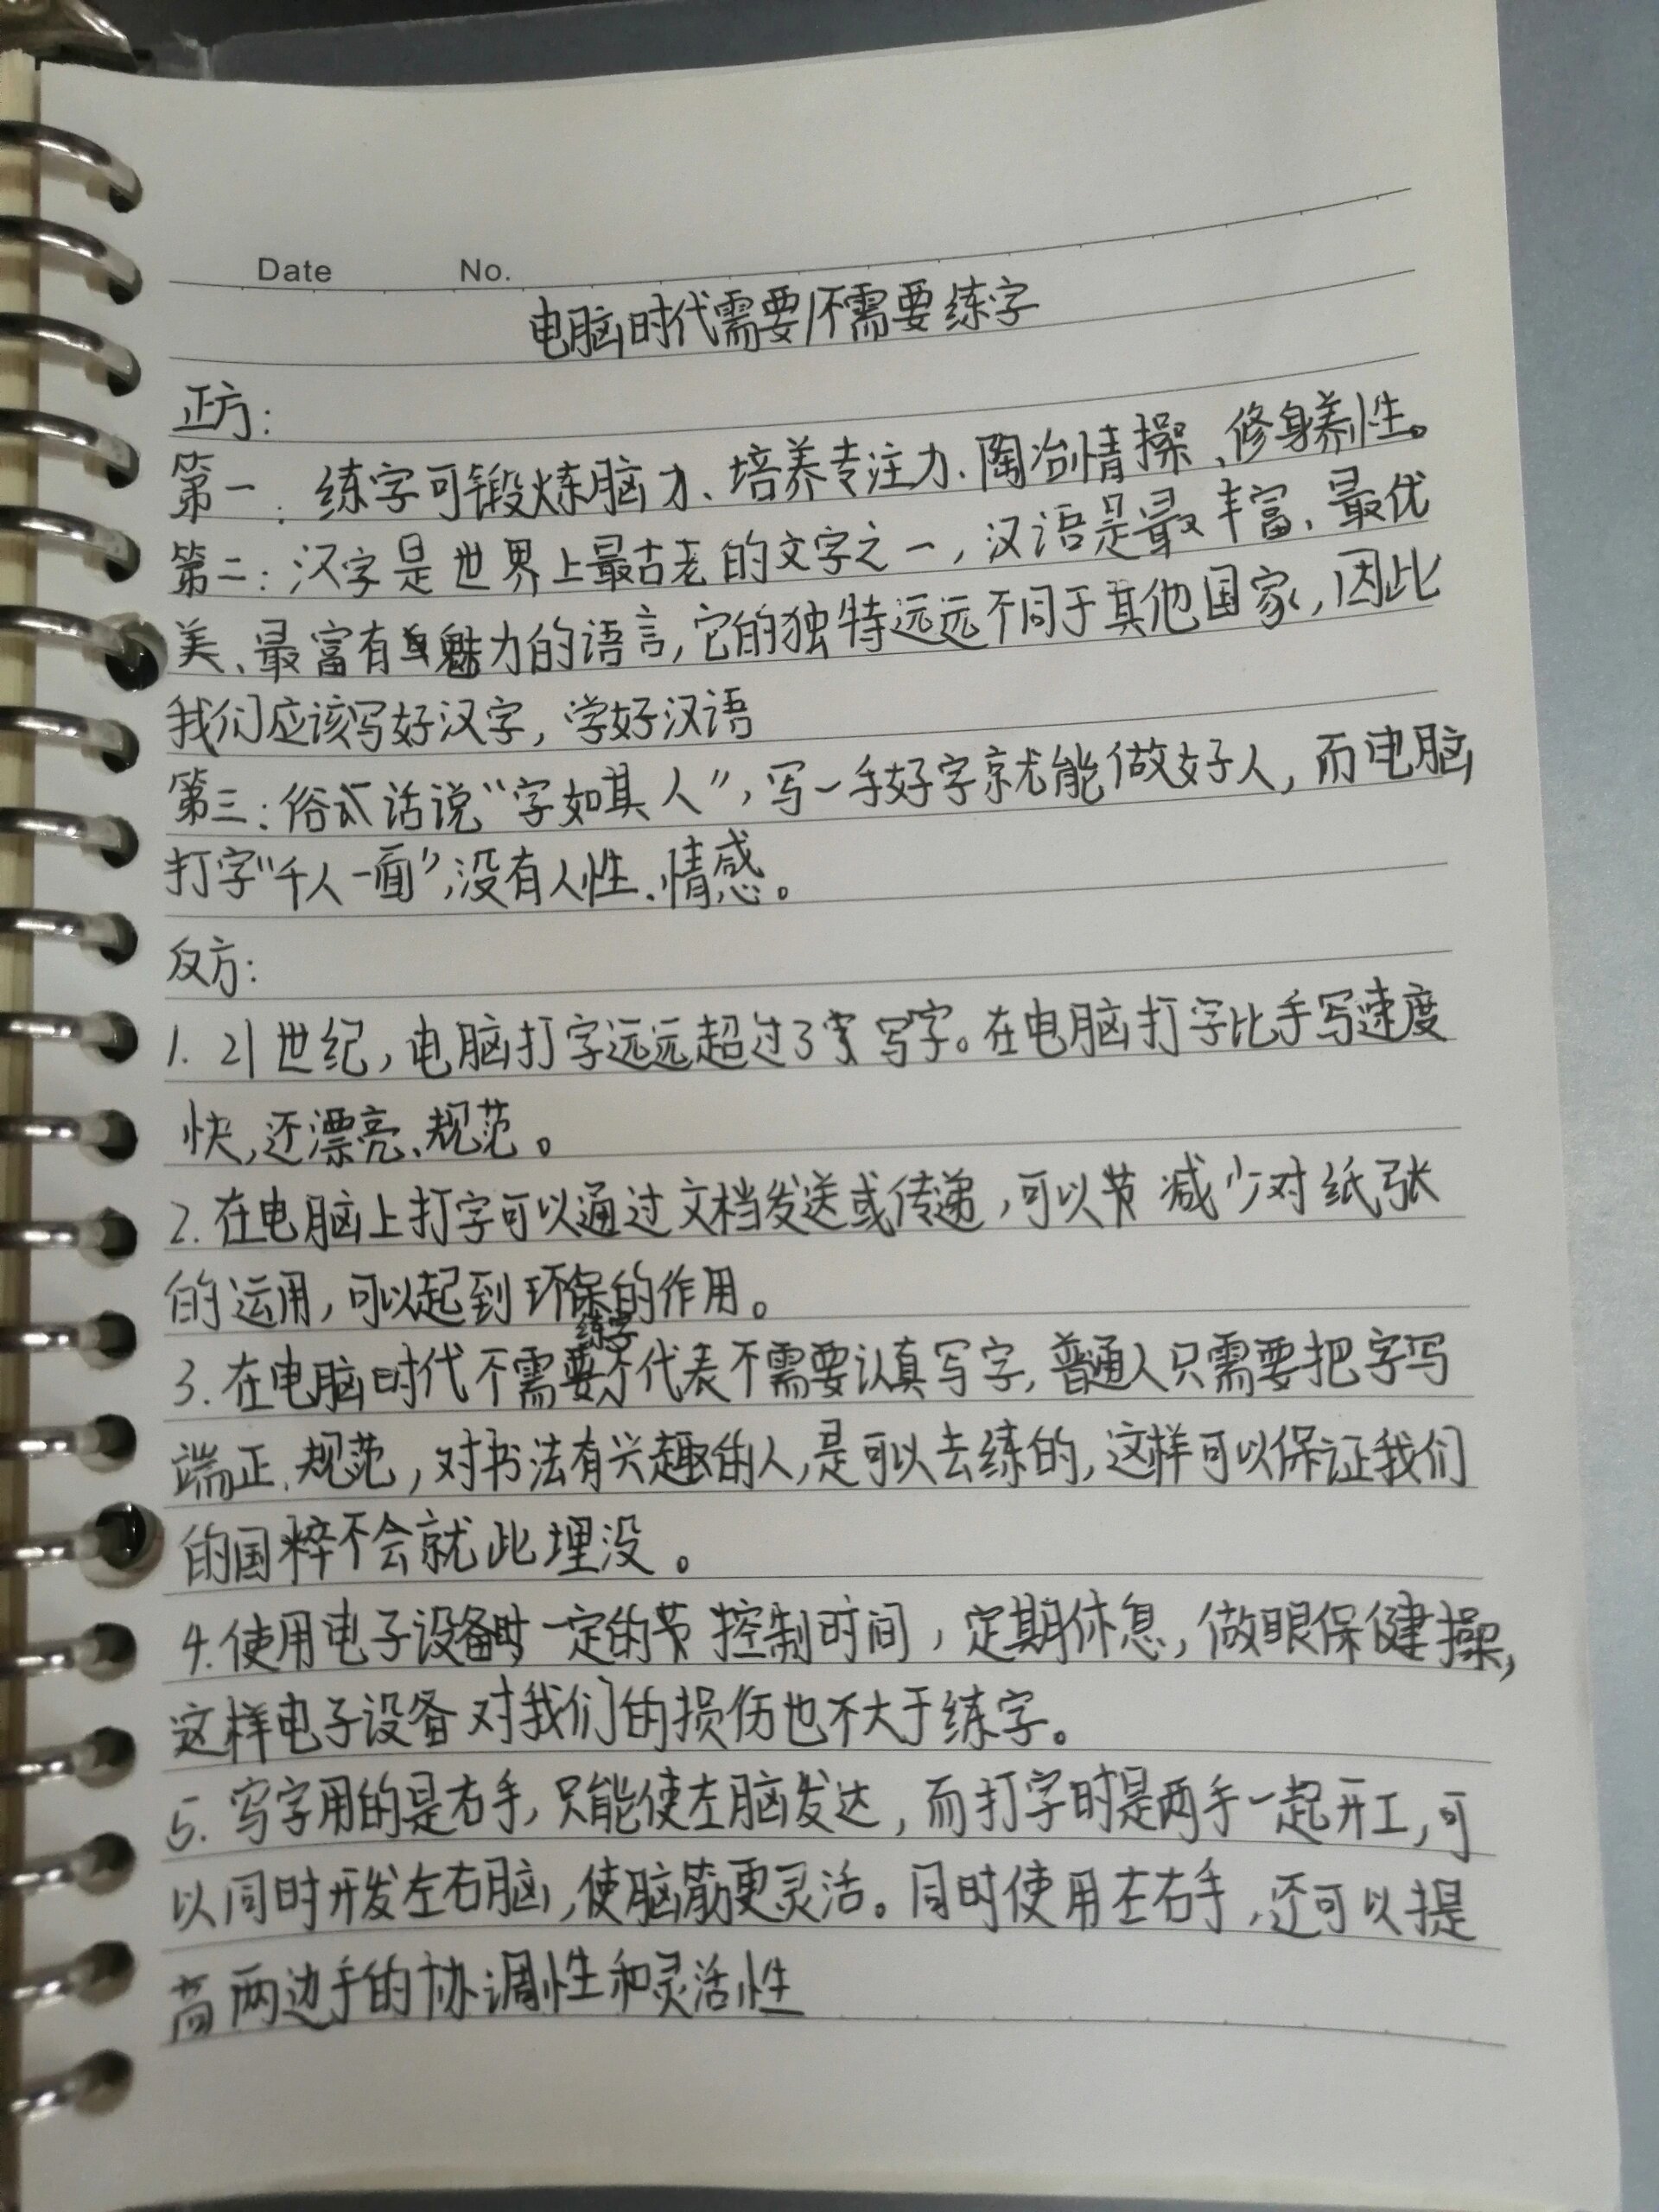 Date No.
电脑时代需要/不需要练字
正方：
第一：练字可锻炼脑力、培养专注力、陶冶情操、修身养性。
第二：汉字是世界上最古老的文字之一，汉语是最丰富、最优
美、最富有魅力的语言，它的独特远远不同于其他国家，因此
我们应该写好汉字，学好汉语
第三：俗话说“字如其人”，写一手好字就能做好人，而电脑
打字“千人一面”，没有人性、情感。
反方：
1. 21世纪，电脑打字远远超过了写字。在电脑打字比手写速度
快，还漂亮、规范。
2. 在电脑上打字可以通过文档发送或传递，可以节减少对纸张
的运用，可以起到环保的作用。
3. 在电脑时代不需要练字不代表不需要认真写字，普通人只需要把字写
端正、规范，对书法有兴趣的人，是可以去练的，这样可以保证我们
的国粹不会就此埋没。
4. 使用电子设备时一定的节控制时间，定期休息，做眼保健操，
这样电子设备对我们的损伤也不大于练字。
5. 写字用的是右手，只能使左脑发达，而打字时是两手一起开工，可
以同时开发左右脑，使脑筋更灵活。同时使用左右手，还可以提
高两边手的协调性和灵活性